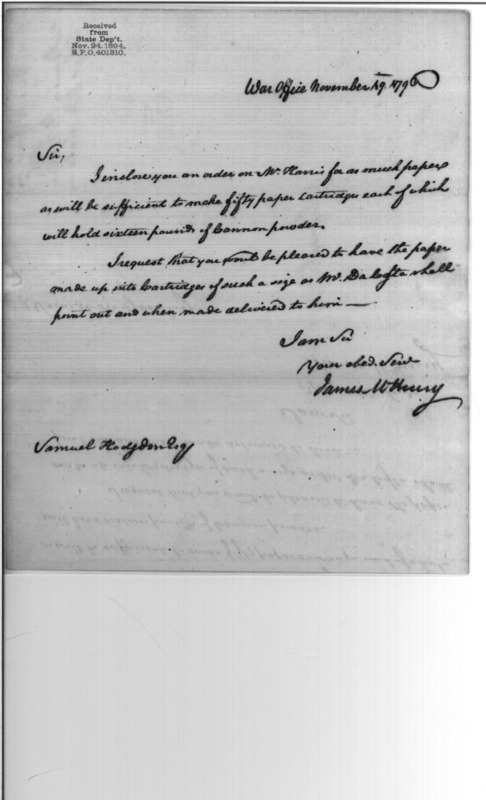 Received
from
State Dep't.
Nov. 24. 1894.
R.P.O. 401310.
War Office November 19. 1796
Sir,
I inclose you an order on Mr. Harris for as much paper
as will be sufficient to make fifty paper Cartridges each of which
will hold sixteen pounds of Cannon powder.
I request that you would be pleased to have the paper
made up into Cartridges of such a size as Mr. DaCosta shall
point out and when made delivered to him —
I am Sir
Your obed. Serv
James McHenry
Samuel Hodgdon Esqr